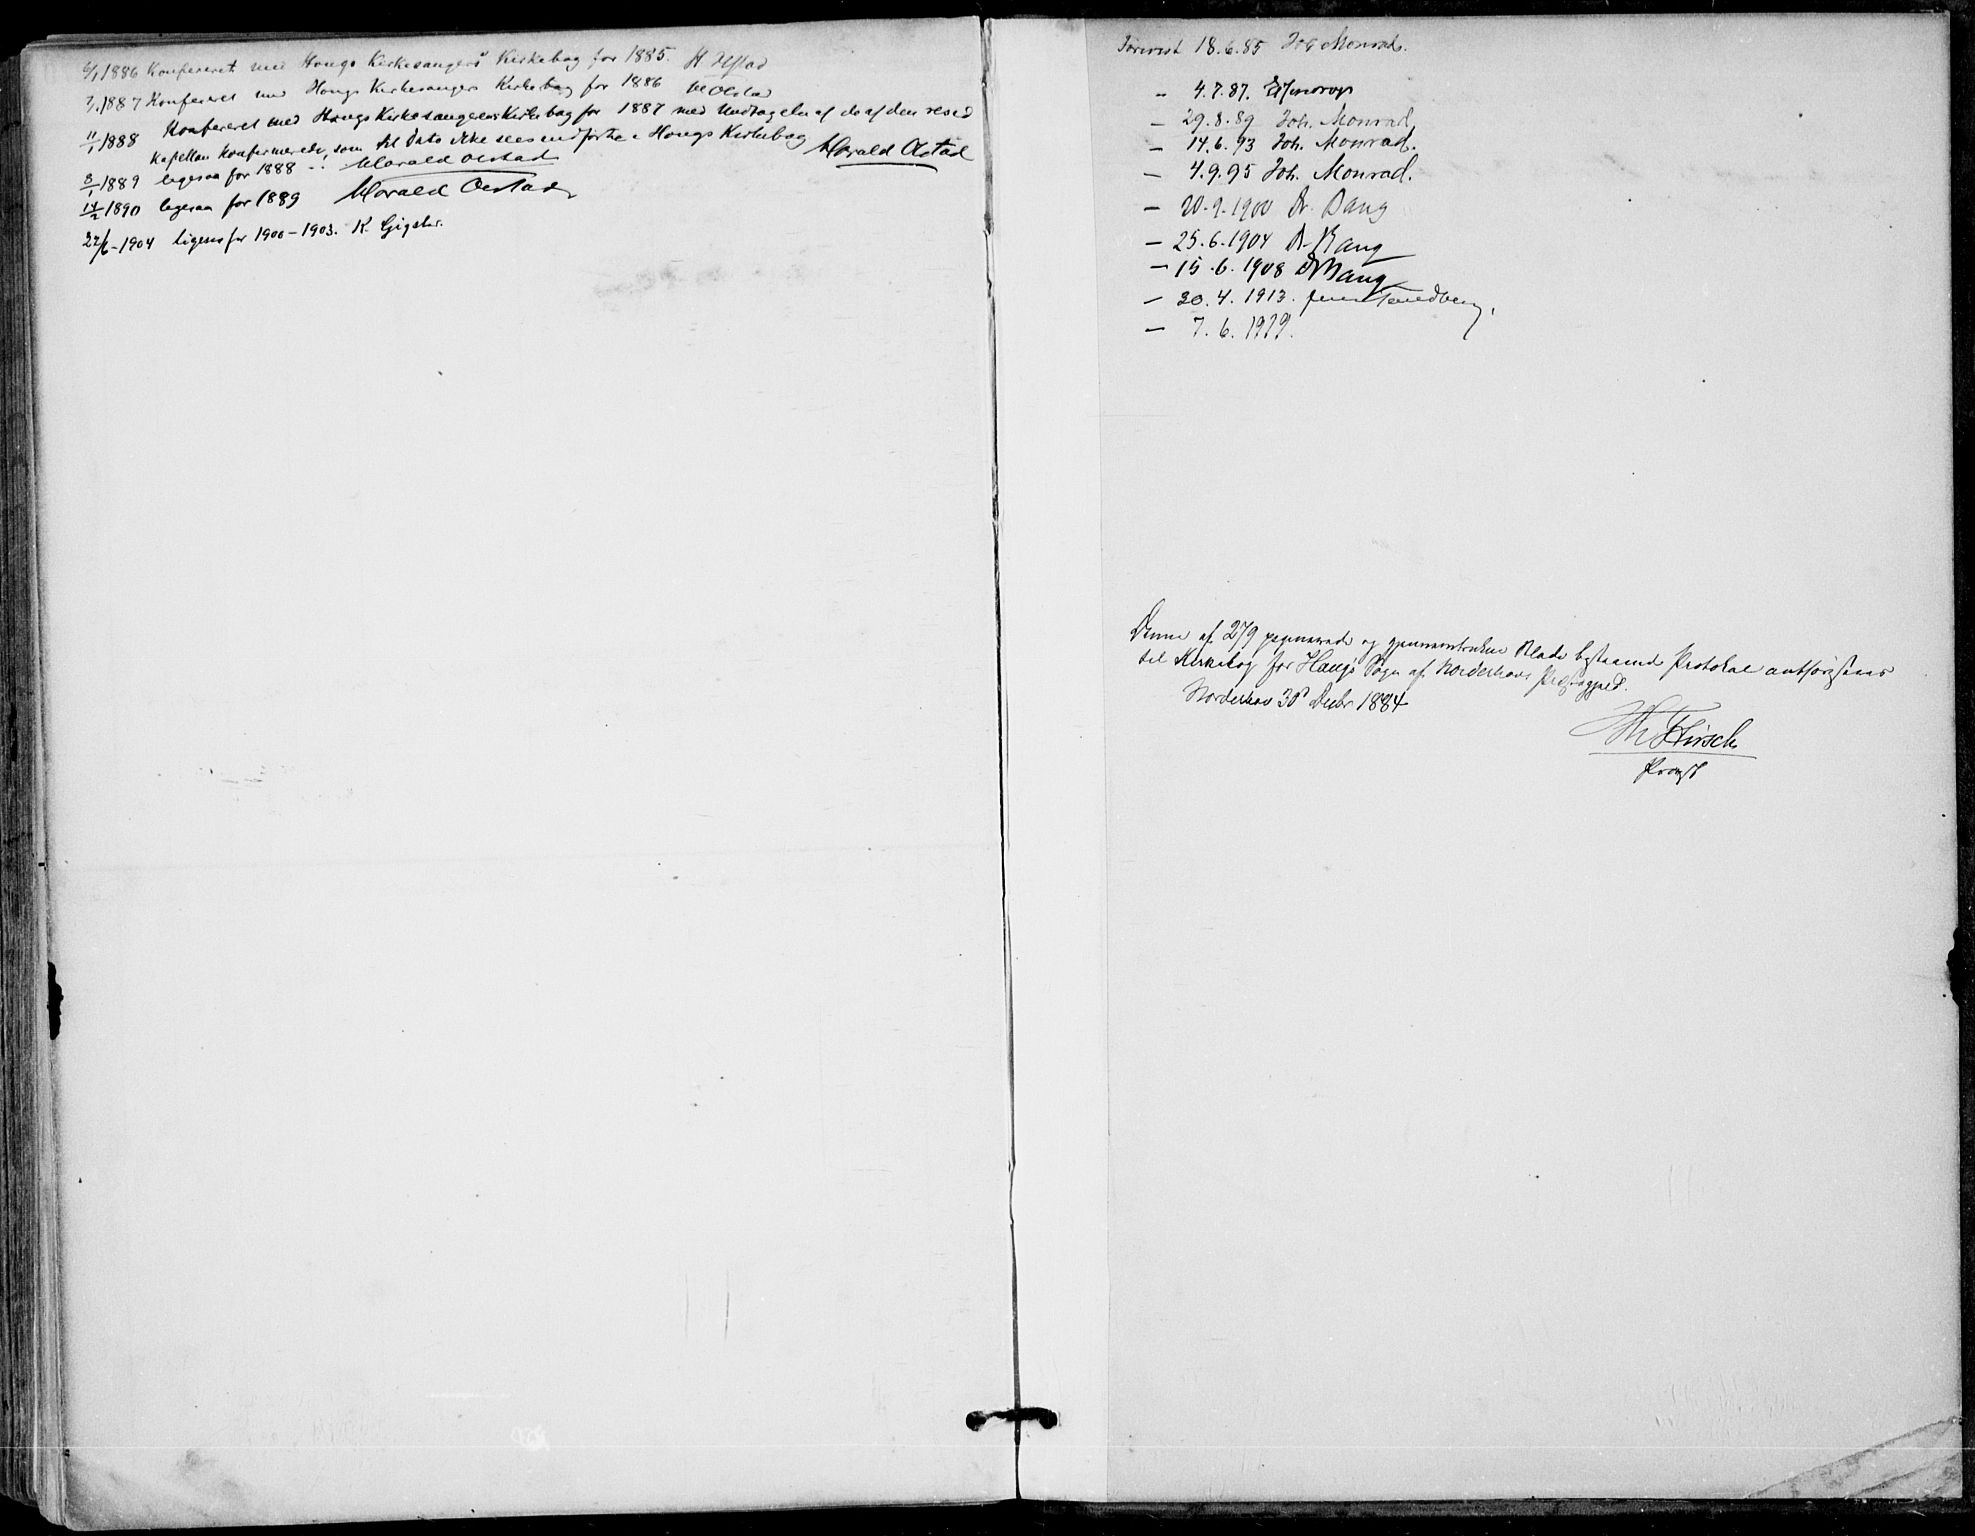 6/1 1886 Konfereret med Hougs Kirkesangers Kirkebog for 1885. H. Olstad
7/1 1887 Konfereret med Hougs Kirkesangers Kirkebog for 1886 H Olstad
11/1 1888 Konfereret med Hougs Kirkesangers Kirkebog for 1887 med Undtagelse af de af den resid
Kapellan Konfirmerede, som til Dato ikke sees indførte i Hougs Kirkebog Harald Olstad
3/1 1889 ligesaa for 1888 Harald Olstad
14/2 1890 ligesaa for 1889 Harald Olstad
22/6 - 1904 ligesaa for 1900-1903. K.
Forevist 18.6.85 Joh Monrad.
— 4.7.87.
— 29.8.89 Joh. Monrad
— 14.6.93 Joh. Monrad.
— 4.9.95 Joh. Monrad.
— 20.9.1900 Dr. Bang
— 25.6.1904 Dr. Bang
— 15.6.1908 Dr Bang
— 30.4.1913. Jens Tandberg.
— 7.6.1919.
Denne af 279 paginerede og gjennemtrukne Blade bestaaende Protokol
til Kirkebog for Hougs Sogn af Norderhovs Præstegjeld.
Norderhov 30 Decbr 1884
Hirsch
Provst